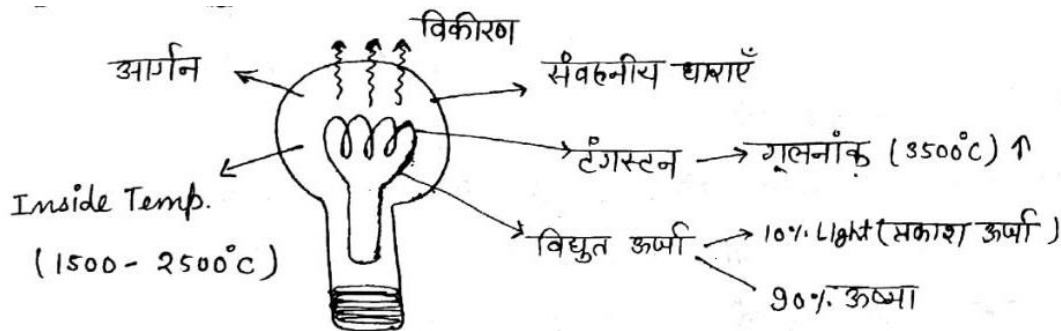 विकीरण
आर्गन
संवहनीय धाराएँ
टंगस्टन → गलनांक (3500°C) ↑
Inside Temp.
(1500 - 2500°C)
विद्युत ऊर्जा → 10% Light (प्रकाश ऊर्जा)
90% ऊष्मा